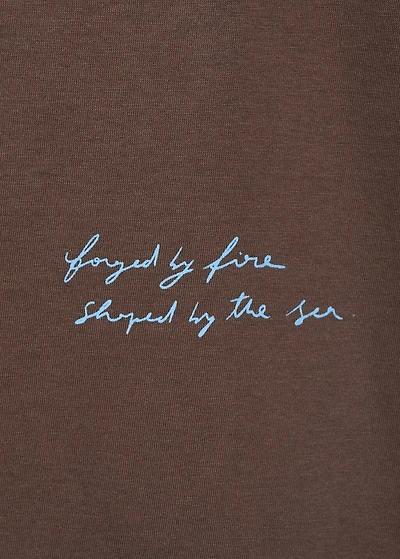 forged by fire
shaped by the sea.